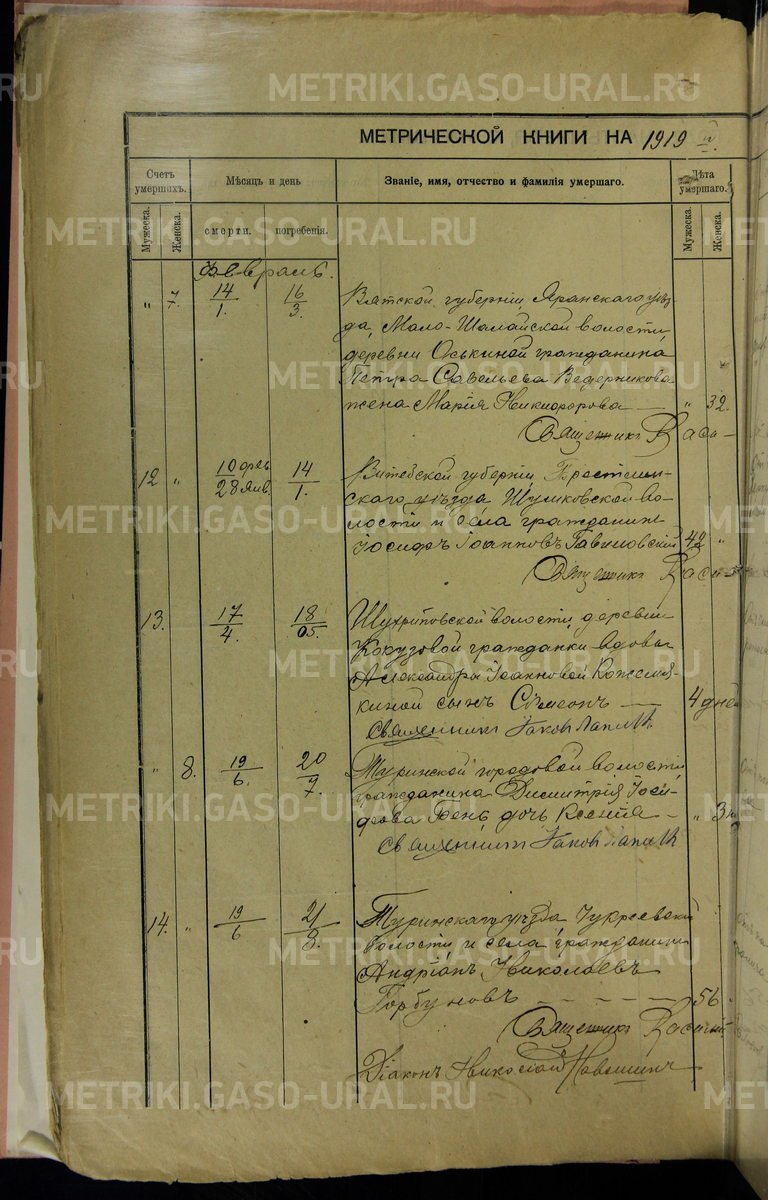 МЕТРИЧЕСКОЙ КНИГИ НА 1919 г.
Счетъ умершихъ.
Мѣсяцъ и день
Званіе, имя, отчество и фамилія умершаго.
Лѣта умершаго.
Мужеска.
Женска.
смерти.
погребенія.
Мужеска.
Женска.
Февраль.
" 7. 14/1. 16/3. Вятской губерніи Яранскаго уѣз-
да, Мало-Шалайской волости,
деревни Оськиной гражданина
Петра Савельева Ведерникова
жена Марія Никифорова — " 32.
Священникъ
12 " 10 фев. 28 янв. 14/1. Витебской губерніи,
скаго уѣзда Шумковской во-
лости и села гражданинъ
Іосифъ Іоанновъ 42 "
Священникъ
13. 17/4. 18/05. волости, деревни
гражданки вдовы
Александры Іоанновой
киной сынъ Сѵмеонъ — 4 дней
Священникъ Іаковъ Лапинъ
" 8. 19/6. 20/7. Туринской городовой волости,
гражданина Димитрія Іоси-
фова дочь Ксенія — " 3
Священникъ Іаковъ Лапинъ
14. " 19/6 21/8. Туринскаго уѣзда Чукреевской
волости и села гражданинъ
Андріанъ Николаевъ
Горбуновъ — — — — 56
Священникъ
Діаконъ Николай
METRIKI.GASO-URAL.RU